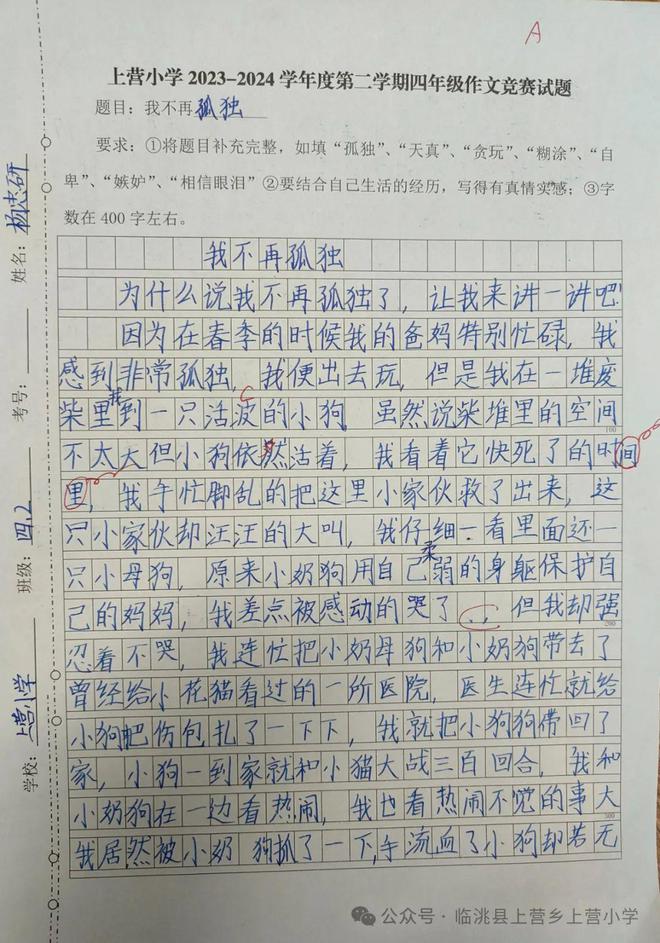 A
上营小学2023-2024学年度第二学期四年级作文竞赛试题
题目：我不再孤独
要求：①将题目补充完整，如填“孤独”、“天真”、“贪玩”、“糊涂”、“自
卑”、“嫉妒”、“相信眼泪”②要结合自己生活的经历，写得有真情实感；③字
数在400字左右。
我不再孤独
为什么说我不再孤独了，让我来讲一讲吧！
因为在春季的时候我的爸妈特别忙碌，我
感到非常孤独，我便出去玩，但是我在一堆废
柴里我到一只活波的小狗 虽然说柴堆里的空间
100
不太大但小狗依然活着，我看着它快死了的时间
里，我手忙脚乱的把这里小家伙救了出来，这
只小家伙却汪汪的大叫，我仔细一看里面还一
只小母狗，原来小奶狗用自己柔弱的身躯保护自
己的妈妈，我差点被感动的哭了，但我却强
200
忍着不哭，我连忙把小奶母狗和小奶狗带去了
曾经给小花猫看过的一所医院，医生连忙就给
小狗把伤包扎了一下下，我就把小狗狗带回了
家，小狗一到家就和小猫大战三百回合，我和
小奶狗在一边看热闹，我也看热闹不觉的事大
300
我居然被小奶狗抓了一下，手流血了小狗却若无
学校：上营小学 班级：四.2 考号： 姓名：杨志研
公众号·临洮县上营乡上营小学